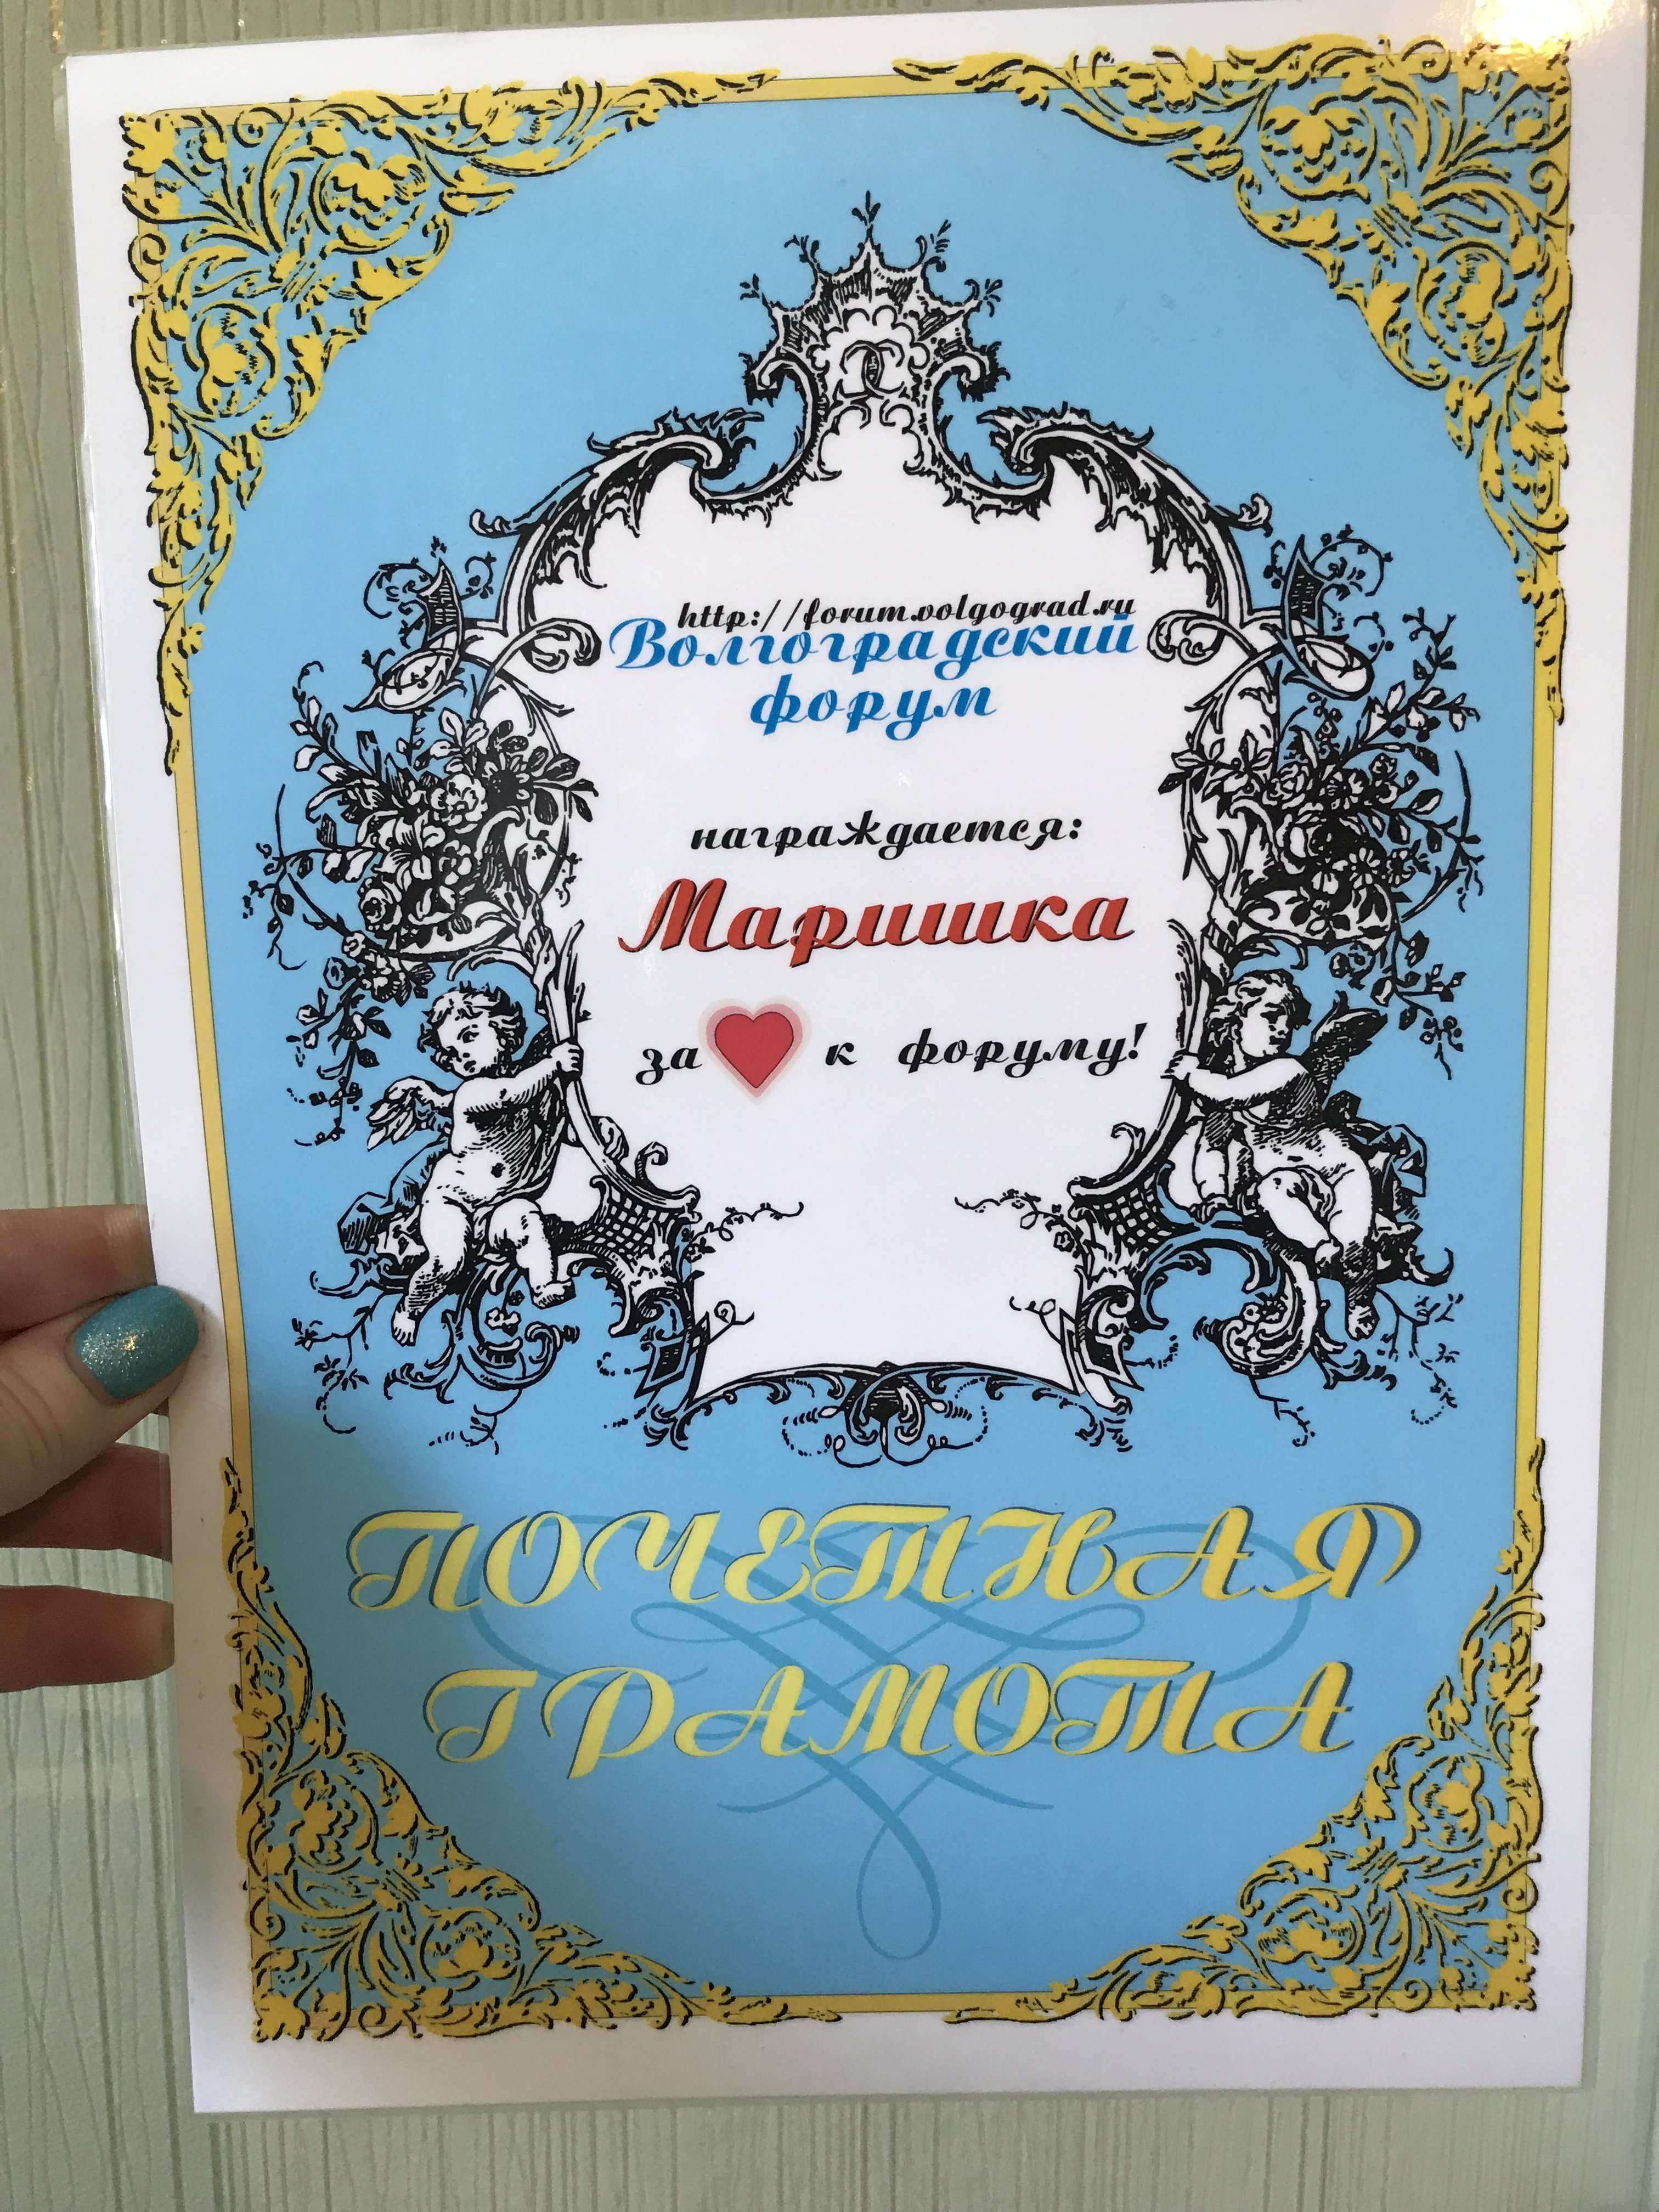 http://forum.volgograd.ru
Волгоградский
форум
награждается:
Маришка
за к форуму!
ПОЧЕТНАЯ
ГРАМОТА